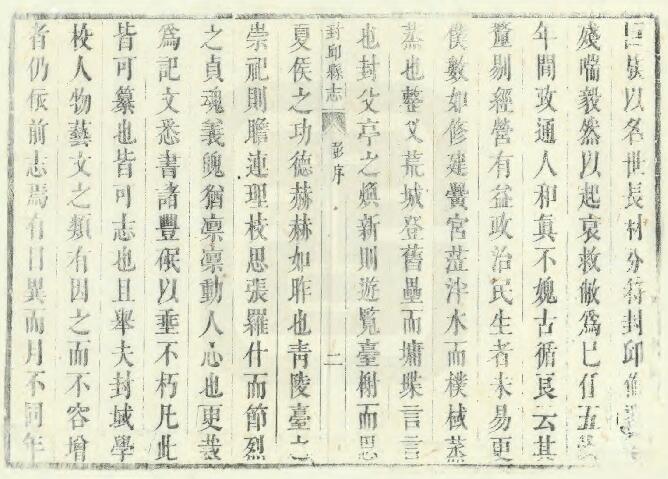 以名世長材分符封邱
殘喘毅然以起衰救敝爲己任五
年間政通人和眞不媿古循良云其
釐剔經營有益政治民生者未易更
僕數如修建黌宮蒞泮水而樸棫蒸
蒸也整艾荒城登舊壘而墉堞言言
也封父亭之煥新則遊覽臺榭而思
封邱縣志 彭序 二
夏侯之功德赫赫如昨也靑陵臺之
崇祀則瞻連理枝思張羅什而節烈
之貞魂義魄猶凛凛動人心也更裁
爲記文悉書諸豐砥以垂不朽凡此
皆可纂也皆可志也且舉夫封域學
校人物藝文之類有因之而不容增
者仍依前志焉有日異而月不同年